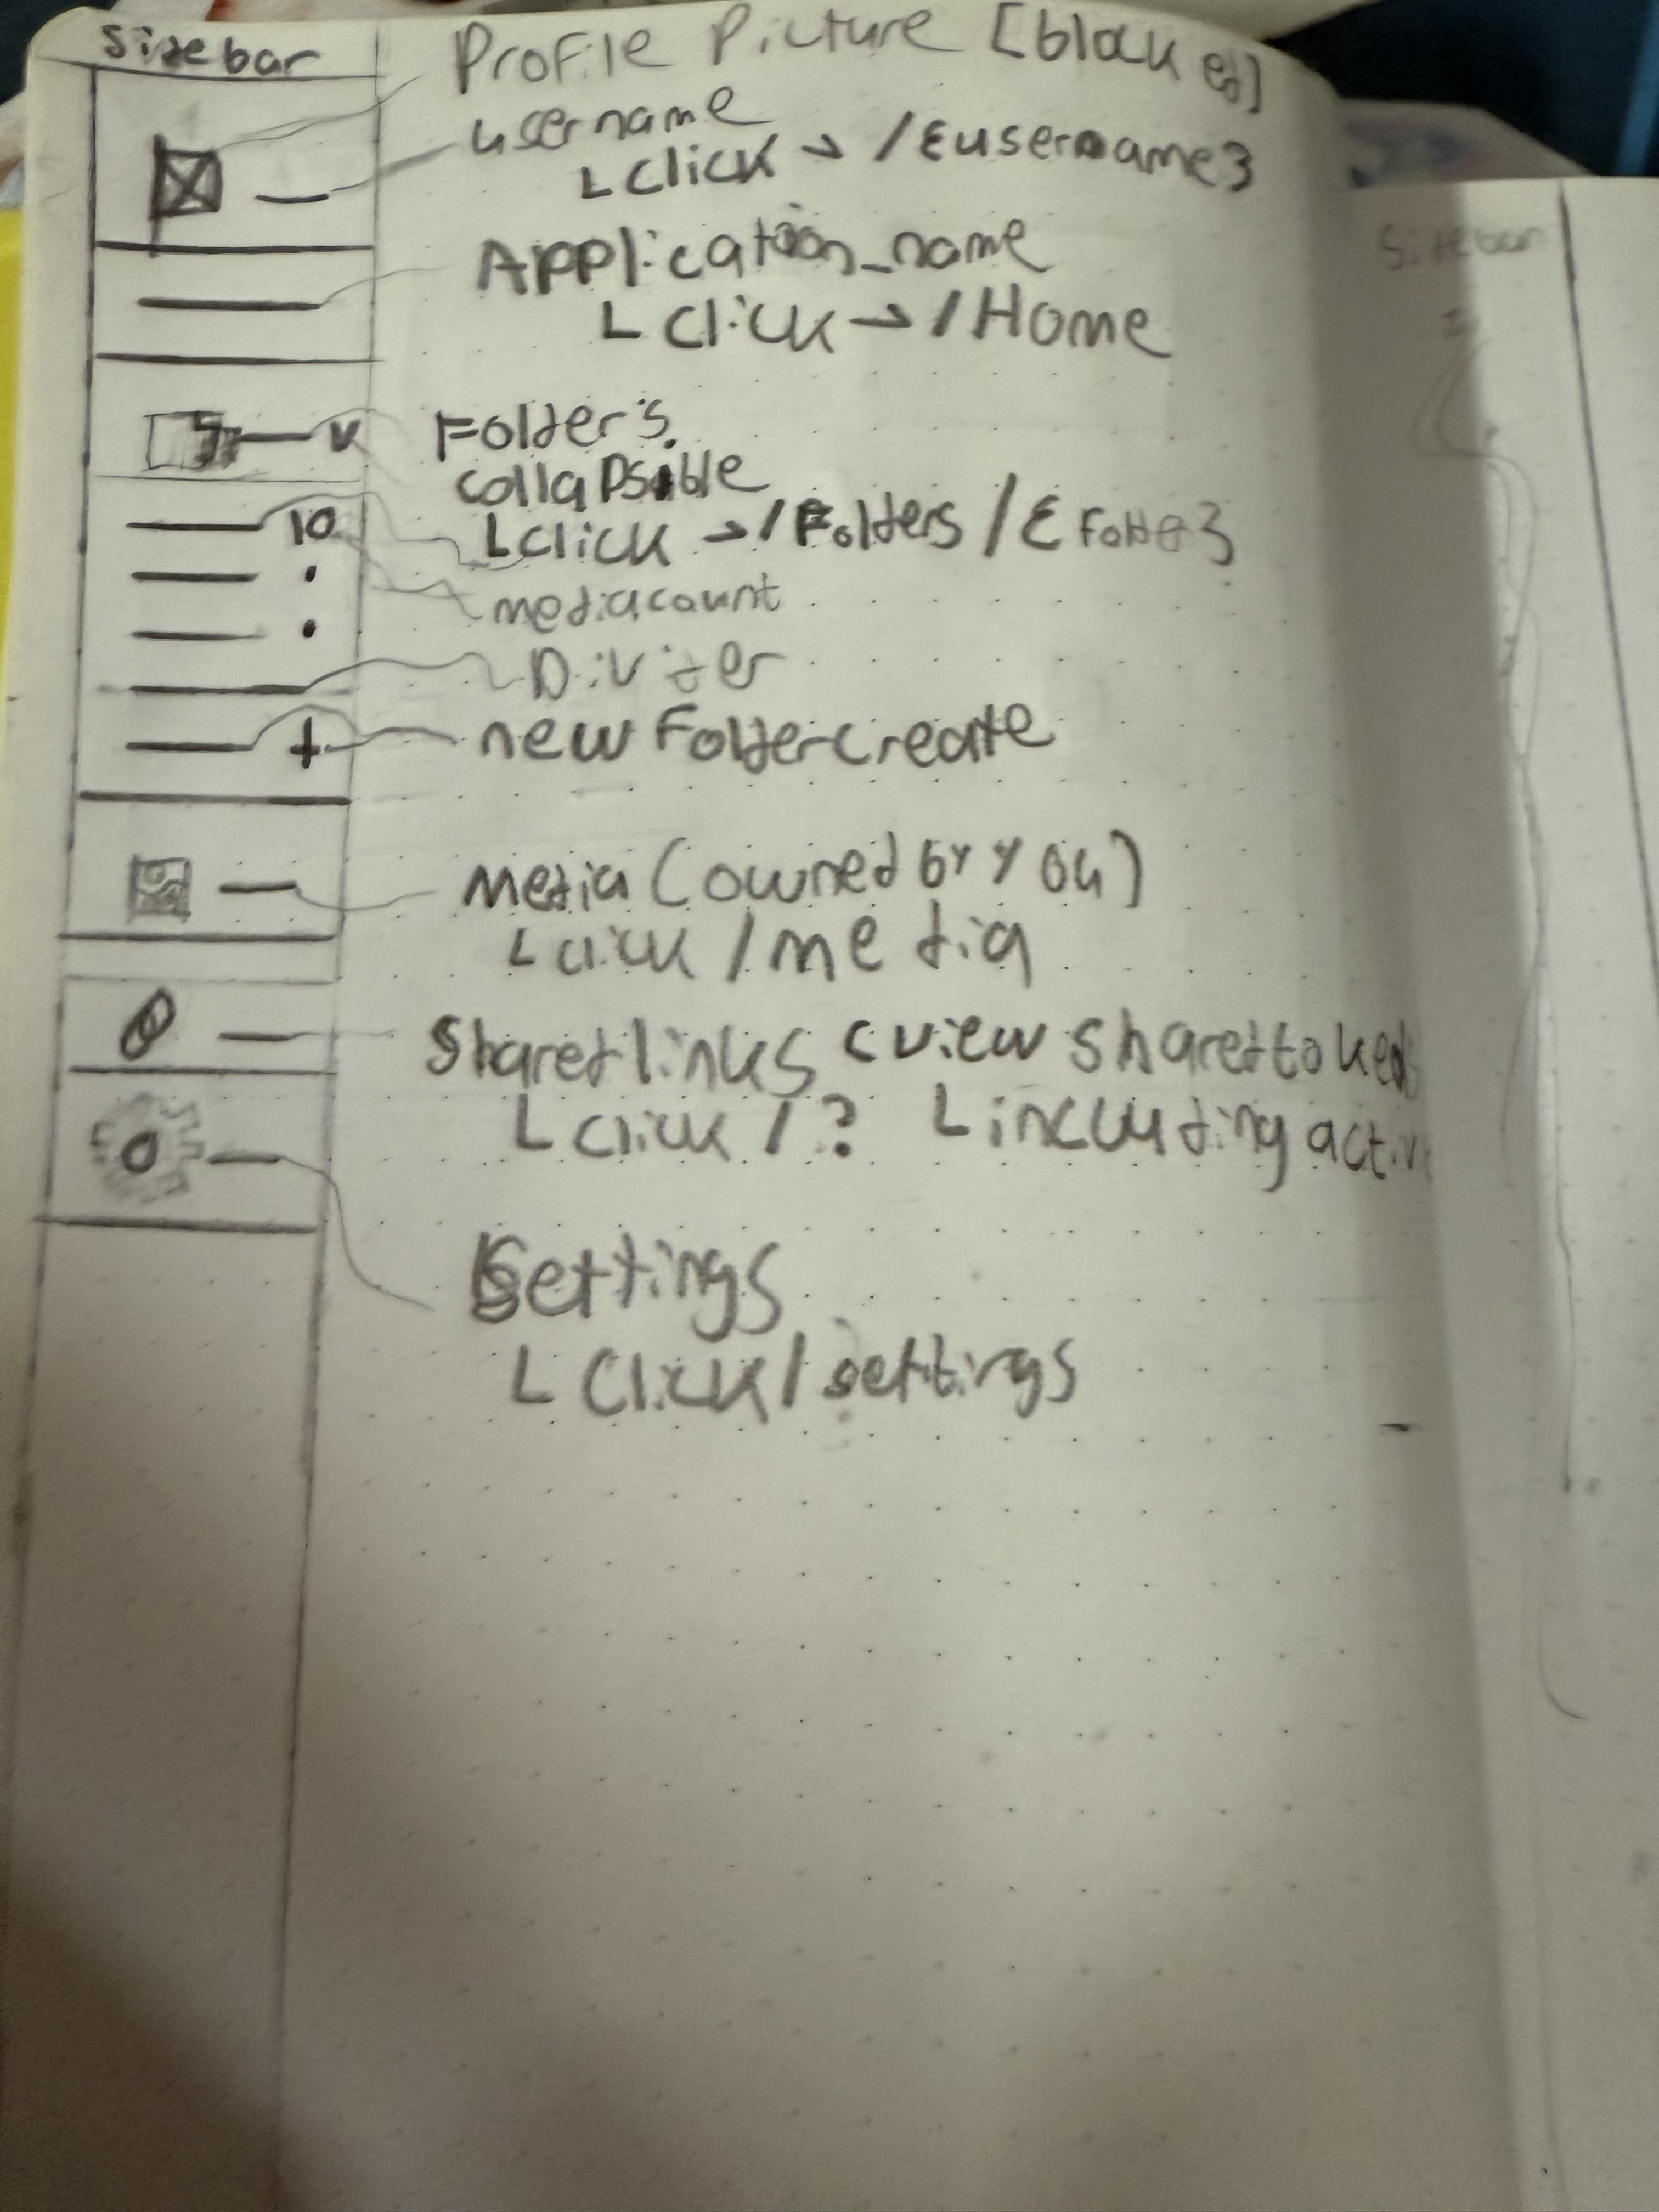 Sidebar
Profile Picture [blocked]
username
L click -> /{username}
Application_name
L click -> /Home
Folders
collapsible
10
L click -> /Folders/{Folder}
mediacount
Divider
+ new Folder create
Media (owned by you)
L click /media
Shared links (view shared tokens
L click /? L including active
Settings
L click /settings
Sidebar